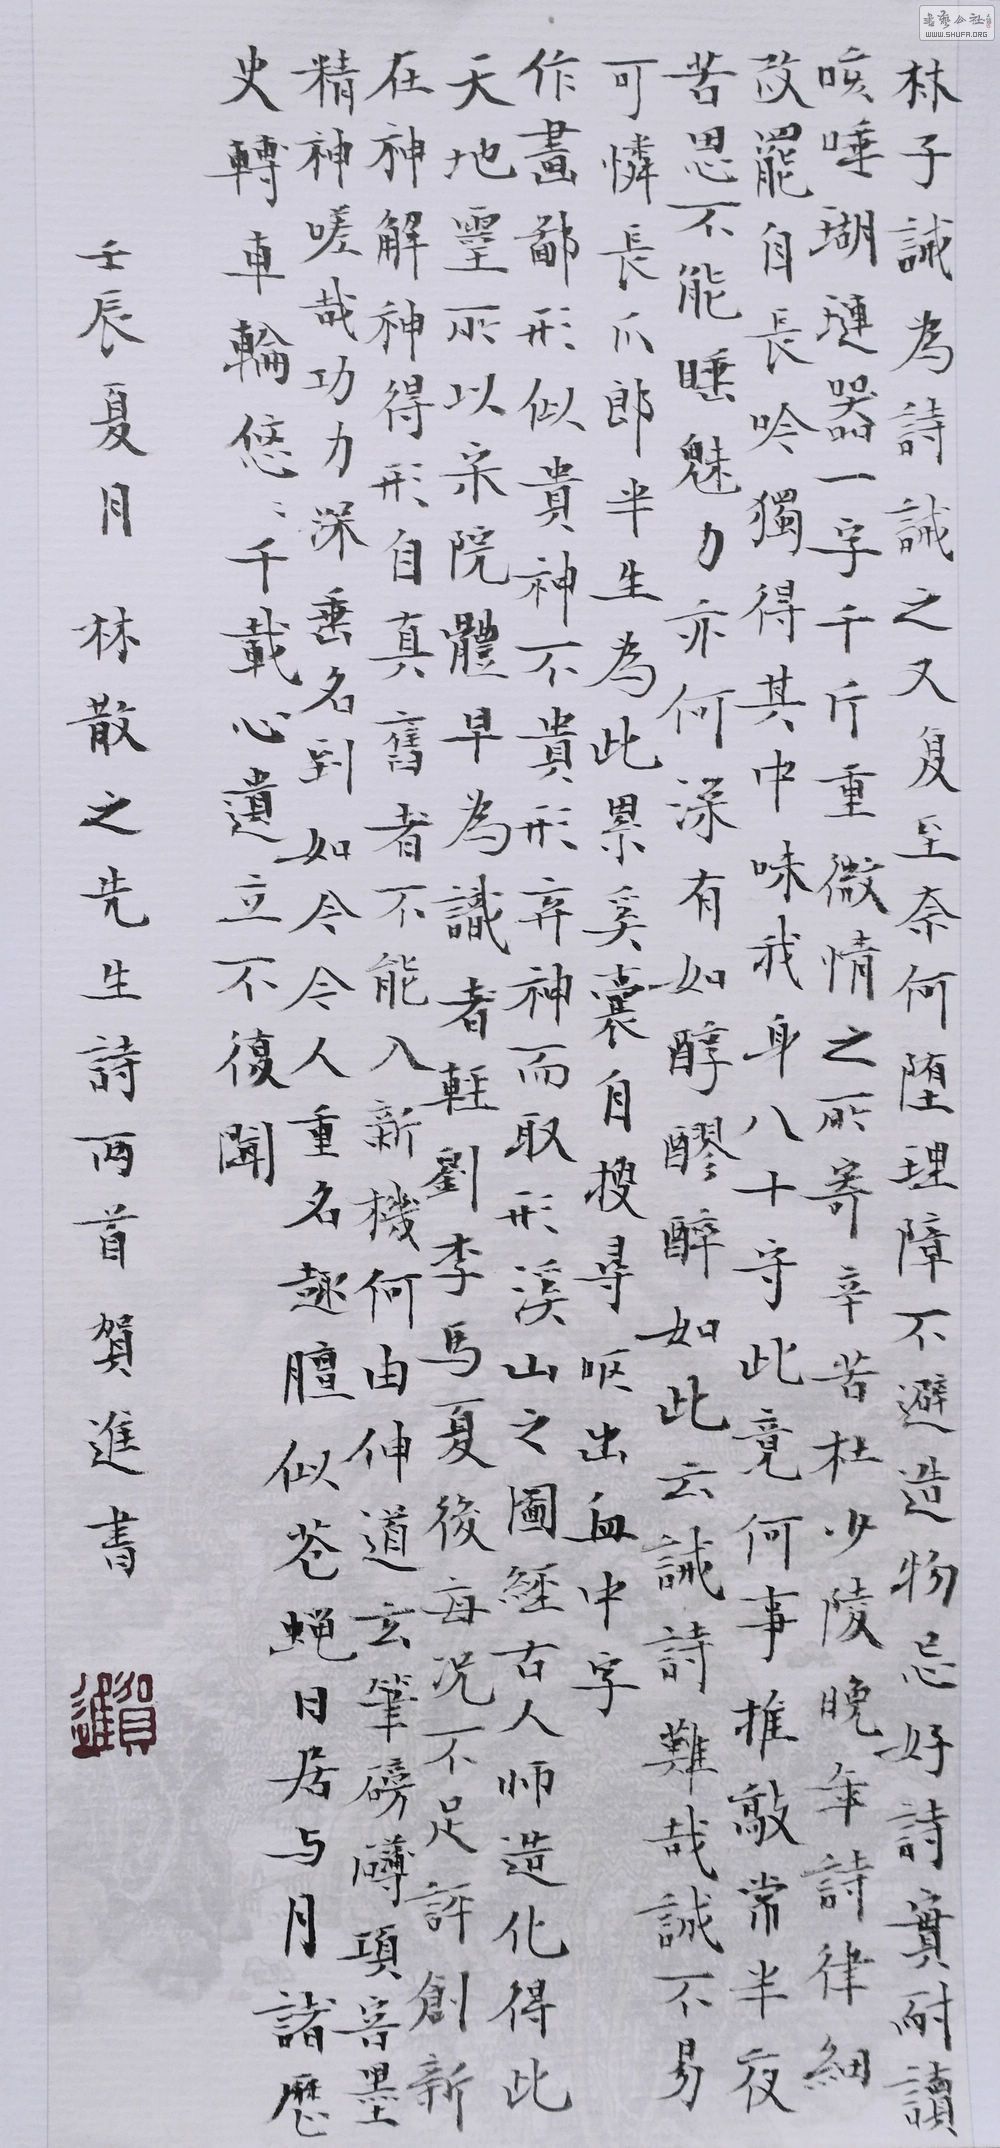 林子誡為詩誡之又复至奈何堕理障不避造物忌好詩實耐讀
咳唾瑚璉器一字千斤重微情之所寄辛苦杜少陵晚年詩律細
改罷自長吟獨得其中味我身八十守此竟何事推敲常半夜
苦思不能睡魅力亦何深有如醇醪醉如此云誡詩難哉誠不易
可憐長爪郎半生為此累奚囊自搜尋呕出血中字
作畫鄙形似貴神不貴形弃神而取形溪山之圖經古人师造化得此
天地靈所以宋院體早為識者輕劉李馬夏後每况不足評創新
在神解神得形自真舊者不能入新機何由伸道玄筆磅礴項容墨
精神嗟哉功力深垂名到如今今人重名趣膻似苍蝇日居与月諸歷
史轉車輪悠〻千載心遺立不復聞
壬辰夏月 林散之先生詩兩首 賀進書
賀進
書藝公社
WWW.SHUFA.ORG